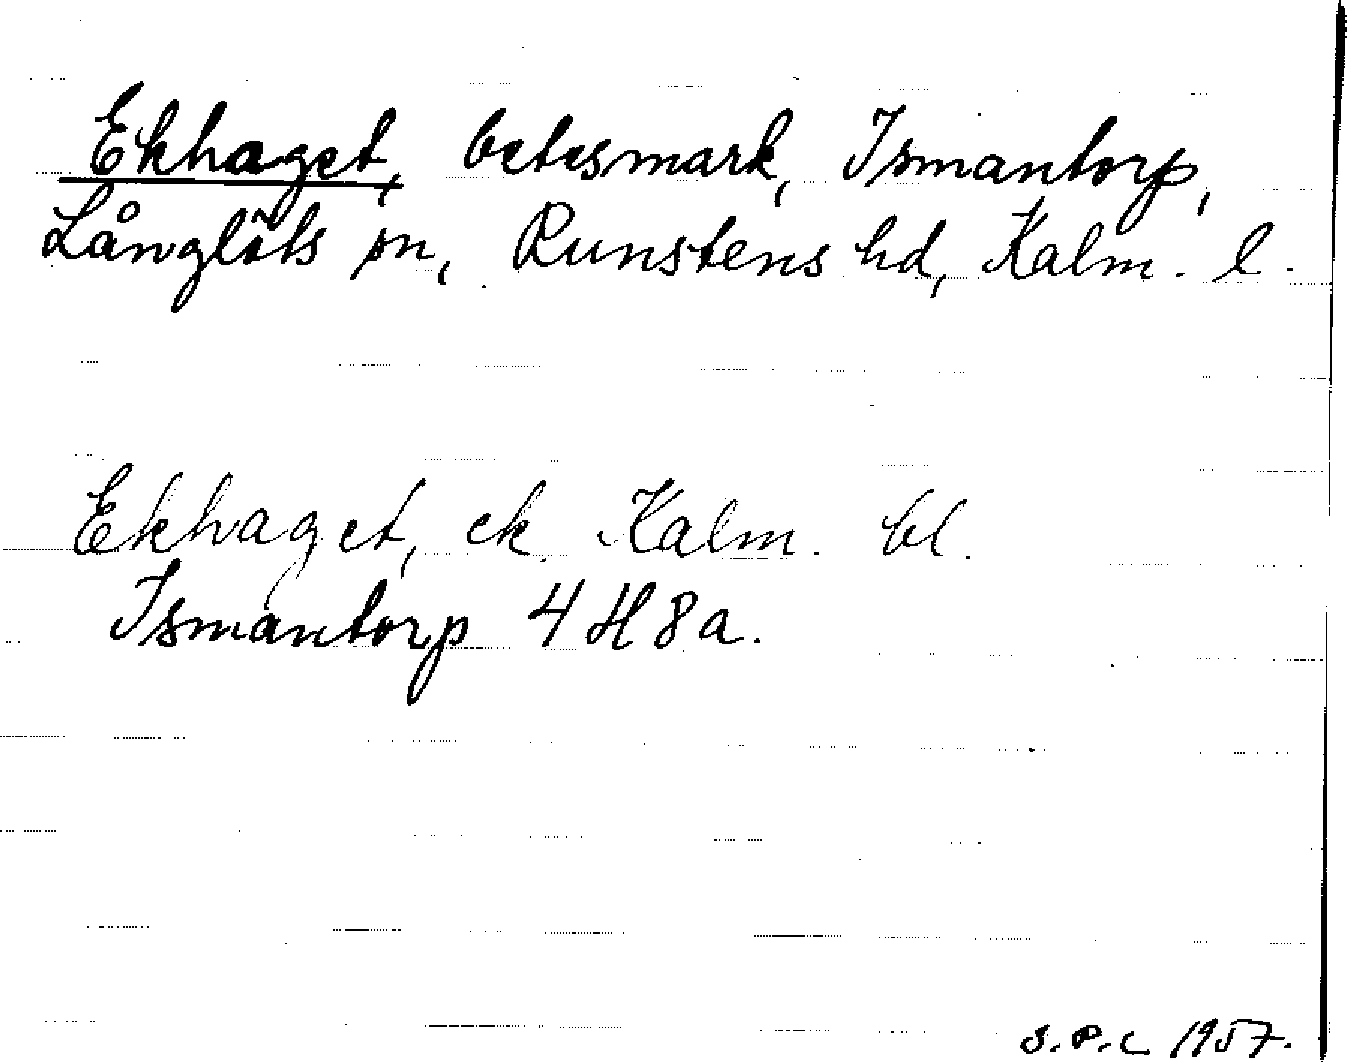 Ekhaget, betesmark, Ismantorp,
Långlöts sn, Runstens hd, Kalm. l.
Ekhaget, ek. Kalm. bl.
Ismantorp 4 H 8 a.
S.P.C 1957.